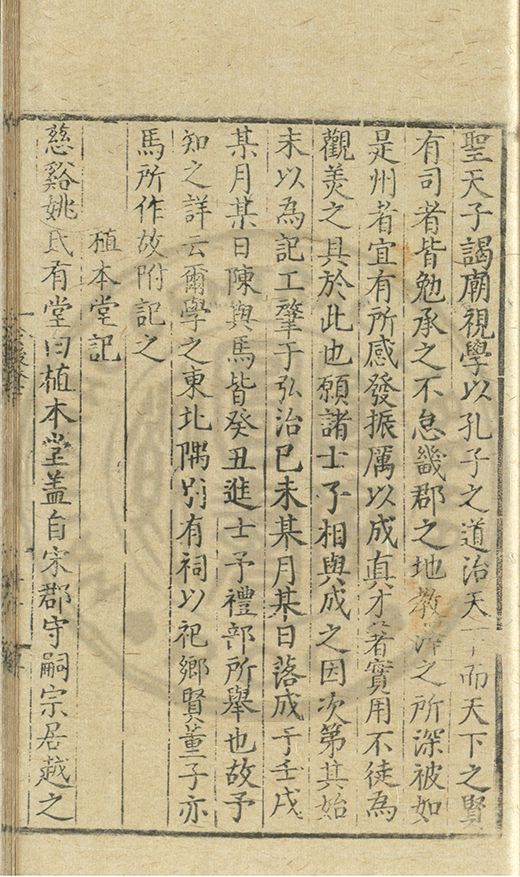 聖天子謁廟視學以孔子之道治天下而天下之賢
有司者皆勉承之不怠畿郡之地教澤之所深被如
是州者宜有所感發振厲以成真才著實用不徒為
觀羙之具於此也願諸士子相與成之因次第其始
末以為記工肇于弘治己未某月某日落成于壬戌
某月某日陳與馬皆癸丑進士予禮部所舉也故予
知之詳云爾學之東北隅别有祠以祀鄉賢董子亦
馬所作故附記之
植本堂記
慈谿姚氏有堂曰植本堂盖自宋郡守嗣宗居越之